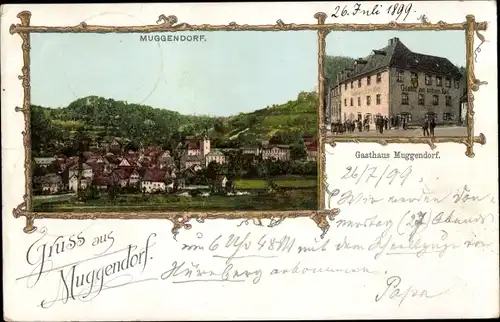 26. Juli 1899.
MUGGENDORF.
Gasthaus Muggendorf.
Gruss aus
Muggendorf.
26/7/99
Wir werden Don-
nerstag (27 Abends
um 6 Uhr 48M mit dem von
Nürnberg ankommen.
Papa